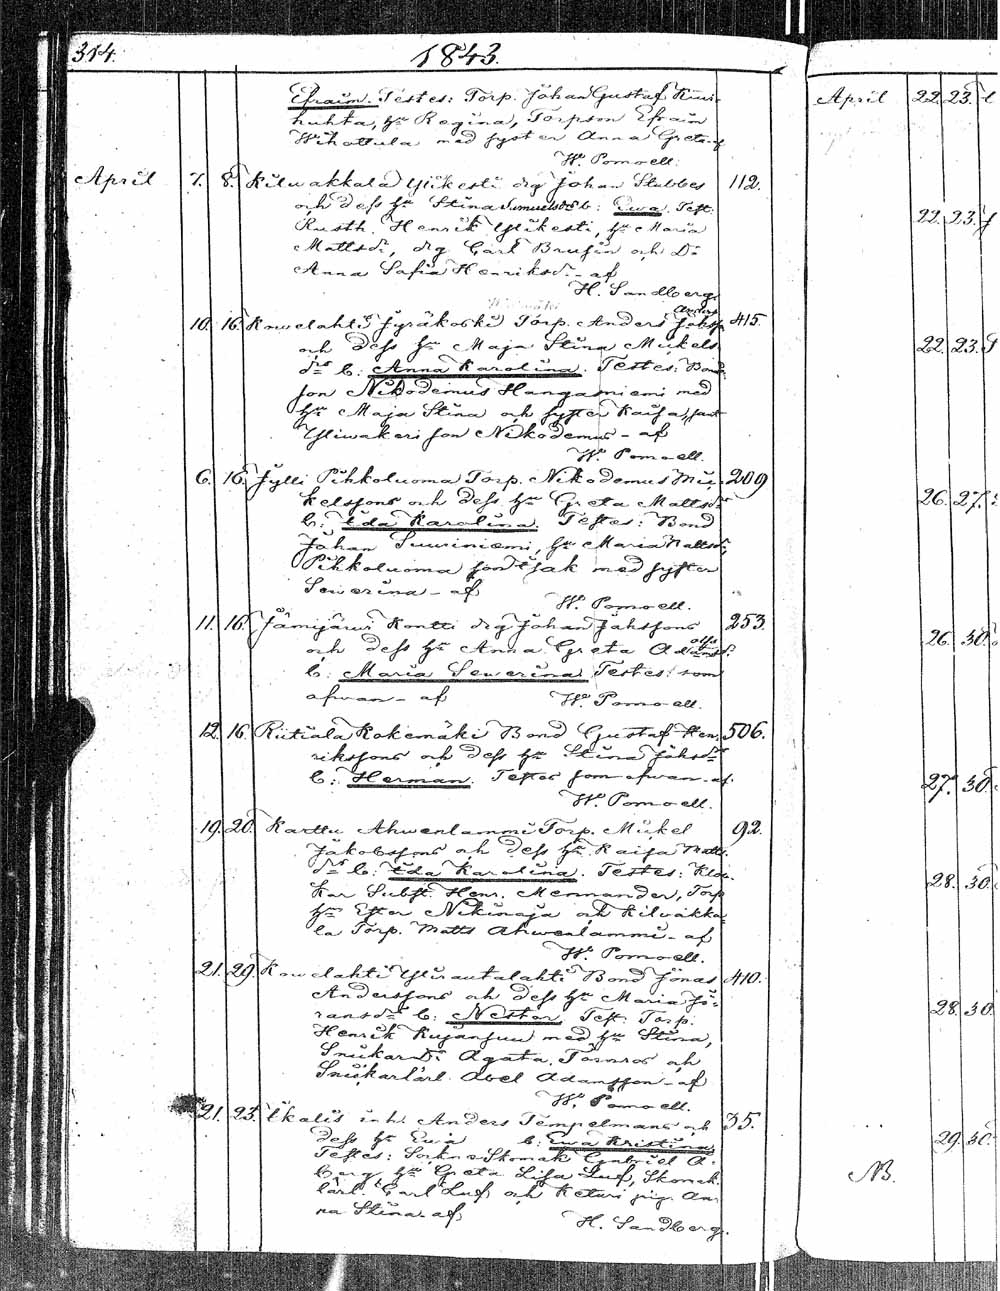 314.
1843.
Efraim. Testes: Torp. Johan Gustaf Kiui-
huhta, hu Regina, Torpson Efraim
Wihottula med syster Anna Greta-af
W. Pomoell.
April 7. 8. Kilwakkala Ylikesti drg Johan Stubbes 112.
och dess hu Stina Samuelsdr b: Ewa Test:
Rusth. Henrik Ylikesti, hu Maria
Mattsdr, drg Carl Brusin och Dr
Anna Safia Henriksdr - af
H. Sandberg.
Anders
10. 16. Kowelahti Jyräkoski Torp. Anders Jakss. 415.
och dess hu Maja Stina Mickels
dr b: Anna Karolina. Testes: Bond
son Nikodemus Hangasniemi med
hu Maja Stina och syster Kaisa, samt
Yliwakeri son Nikodemus - af
W. Pomoell.
6. 16. Jylli Pihkoluoma Torp. Nikodemus Mic- 209
kelssons och dess hu Greta Mattsdr
b: Eda Karolina. Testes: Bond
Johan Suuriniemi, hu Maria Mattsdr,
Pihkoluoma son Isak med syster
Sewerina - af
W. Pomoell.
11. 16. Jämijärwi Kontti drg Johan Johssons 253.
och dess hu Anna Greta Adamsd.
b: Maria Sewerina Testes: som
ofwan - af W. Pomoell.
12. 16. Riitiala Kokemäki Bond Gustaf Hen- 506.
rikssons och dess hu Stina Johsdr
b: Herman. Testes som ofwan - af.
W. Pomoell.
19. 20. Karttu Ahwenlammi Torp. Mickel 92.
Jakobssons och dess hu Kaisa Matts
dr b: Eda Karolina. Testes: Klo-
kar Subst. Henr. Memander, Torp
hu Ester Nikinoja och Kilwakka-
la Torp. Matts Ahwenlammi - af
W. Pomoell.
21. 29. Kowelahti Ylirautalahti Bond Jonas 410.
Anderssons och dess hu Maria Jö-
ransdr b: Nestor. Test: Torp.
Henrik Kujansuu med hu Stina,
Snickar Dr Agata Törnros och
Snickarlärl. Abel Adamsson - af
W. Pomoell.
21. 23. Ikalis inh. Anders Tempelmans och 35.
dess hu Ewa b: Ewa Kristina
Testes: Sockne Skomak Gabriel A-
berg, hu Greta Lisa Luf, Skomak.
lärl. Carl Luf och Keturi pig. An-
na Stina - af
H. Sandberg.
April 22. 23.
22. 23.
22. 23.
26. 27.
26. 30.
27. 30.
28. 30.
28. 30.
29. 30.
NB.